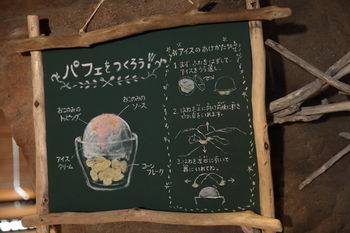 パフェをつくろう!!
おこのみの
トッピング
おこのみの
ソース
アイス
クリーム
コーン
フレーク
アイスのあけかた
1.まず、ふたをはずして、
2.
3.ふたを左右に引いて
器にいれてね。